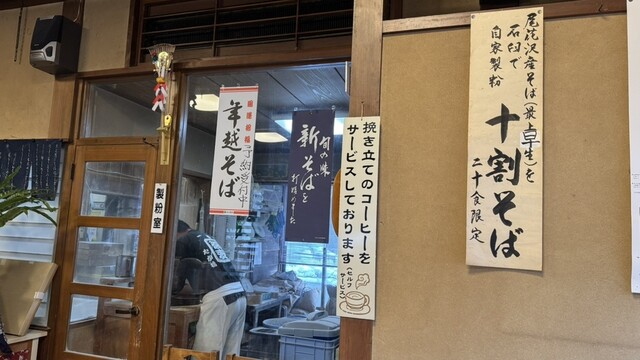 尾花沢産そば(最上早生)を
石臼で
自家製粉
十割そば
二十食限定
挽き立てのコーヒーを
サービスしております
(セルフサービス)
旬の味
新そばを
打始めました
年越そば
予約受付中
製粉室